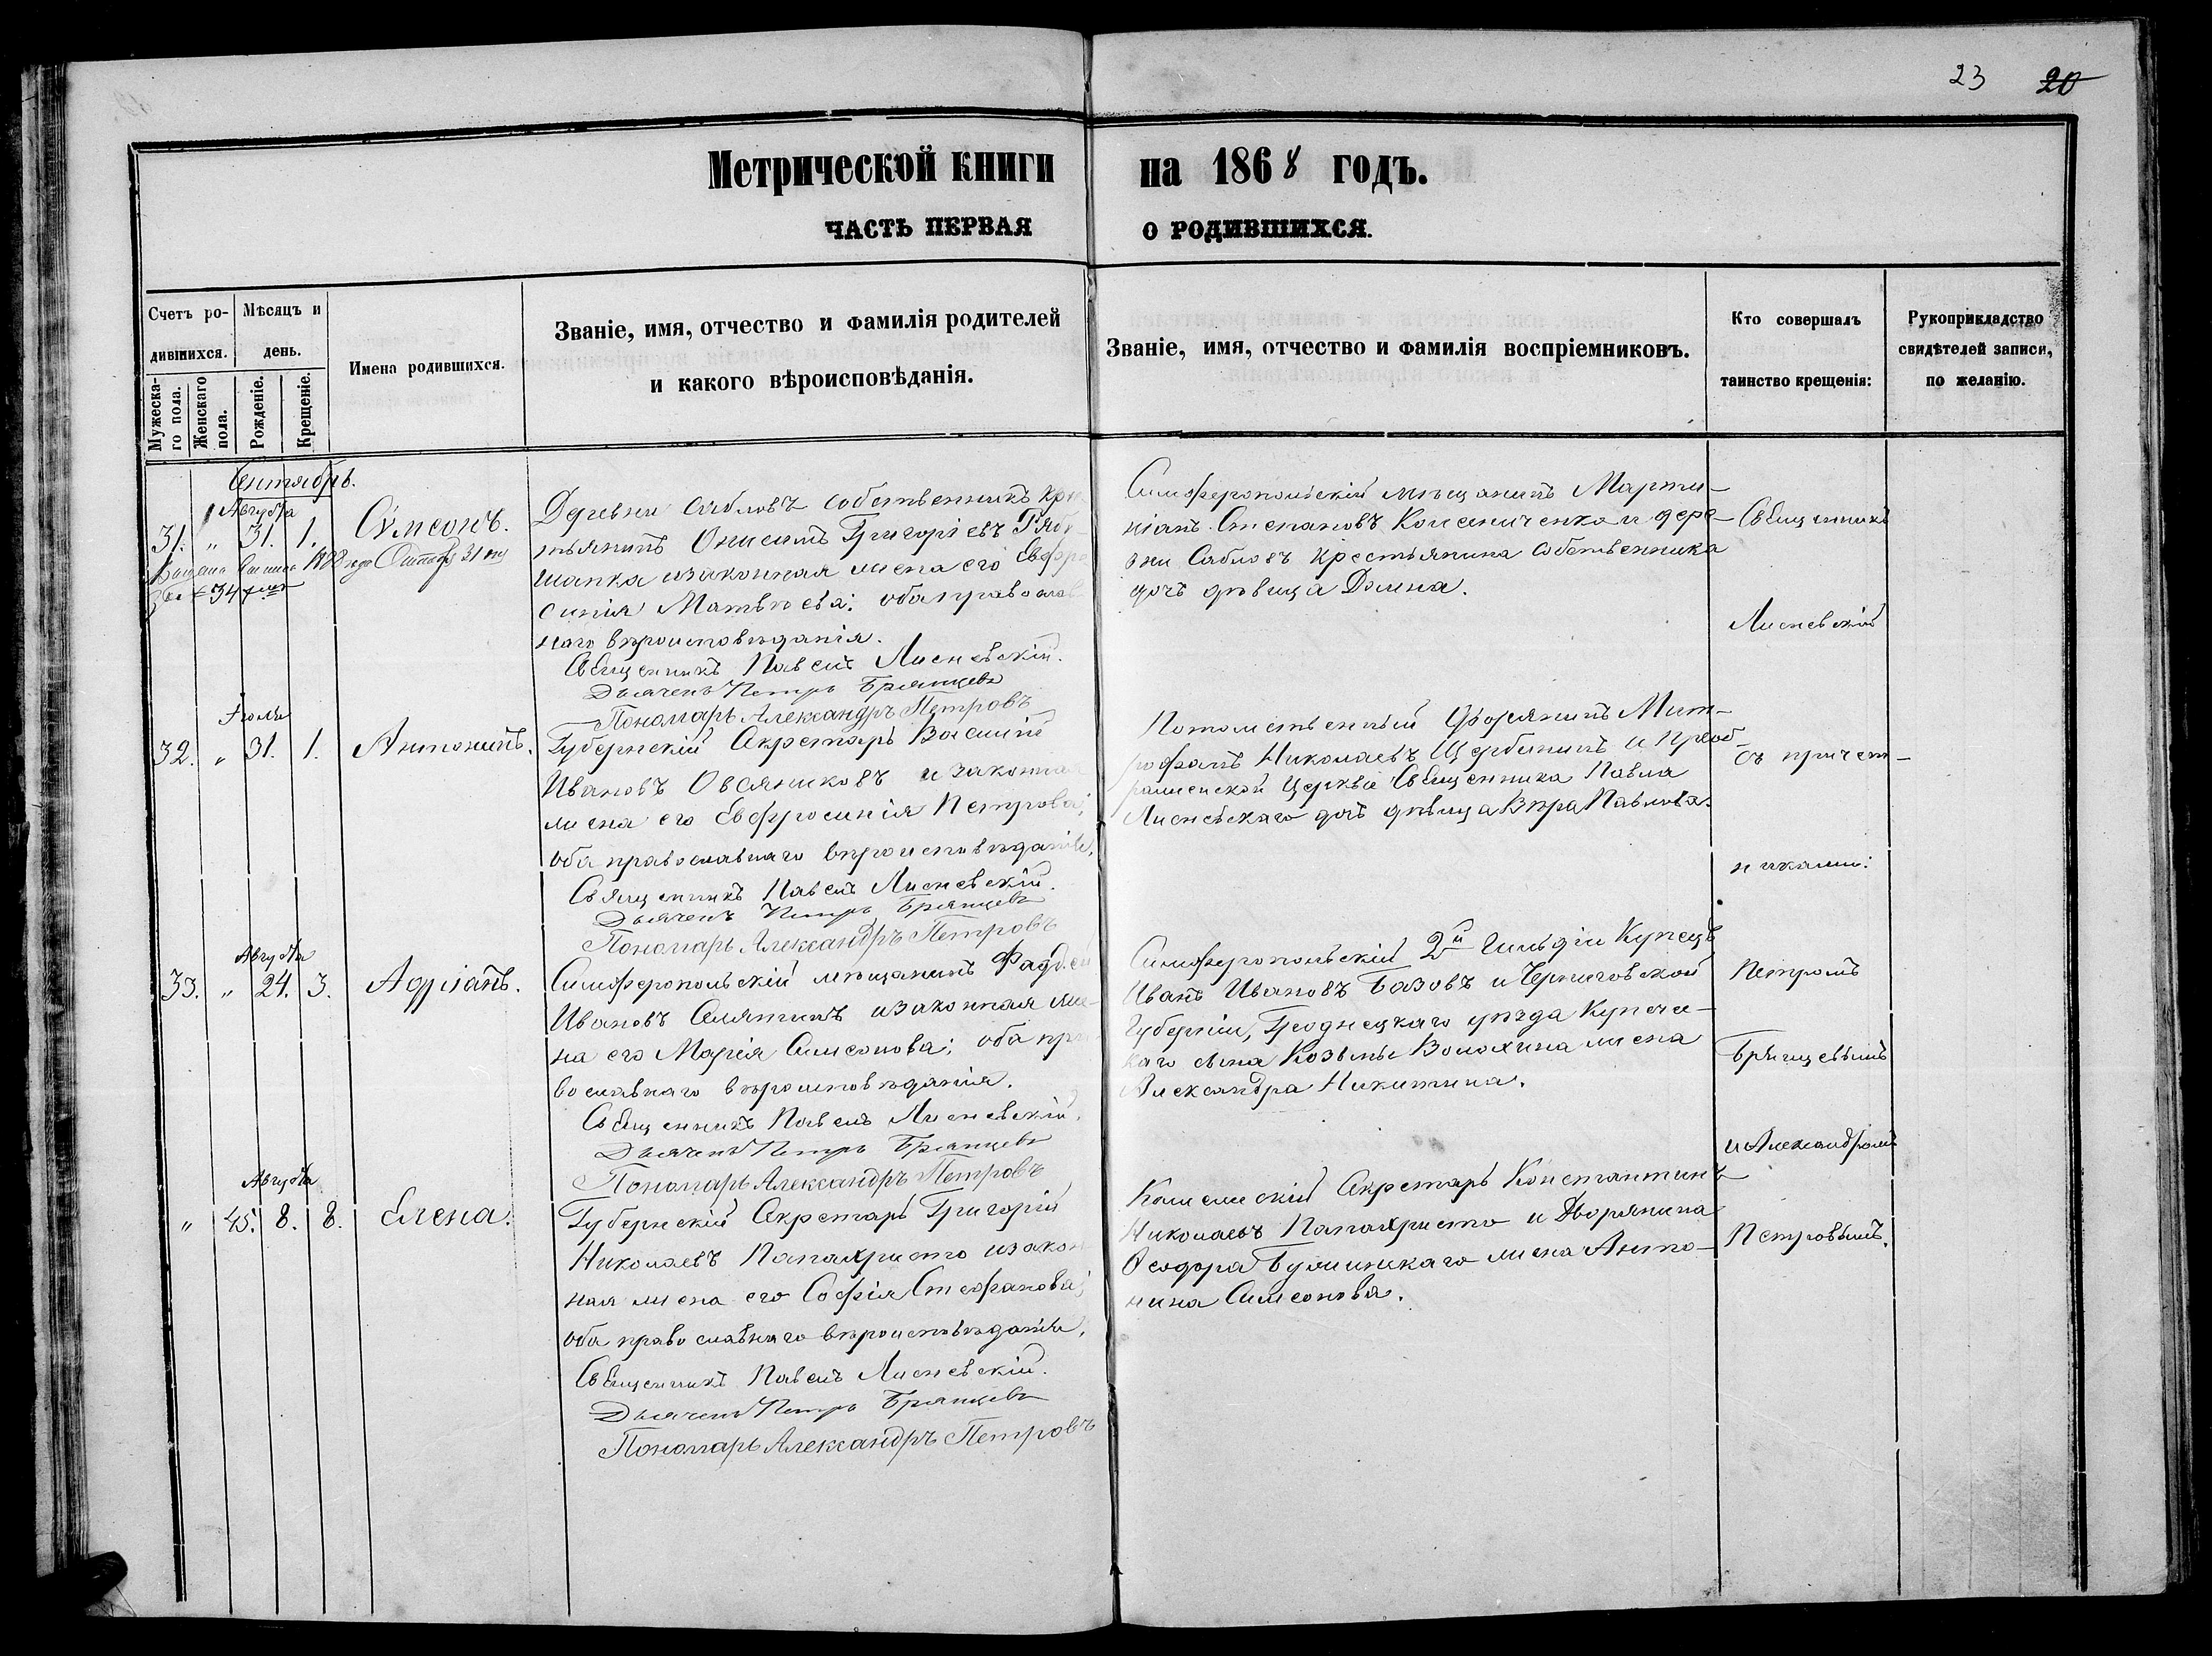 23 20
Метрической книги на 1868 годъ.
ЧАСТЬ ПЕРВАЯ О РОДИВШИХСЯ.
Счетъ родившихся.
Мужеска-
го пола.
Женскаго
пола.
Мѣсяцъ и
день.
Рожденіе.
Крещеніе.
Имена родившихся.
Званіе, имя, отчество и фамилія родителей
и какого вѣроисповѣданія.
Званіе, имя, отчество и фамилія воспріемниковъ.
Кто совершалъ
таинство крещенія:
Рукоприкладство
свидѣтелей записи,
по желанію.
Сентябрь.
Августа
31. „ 31. 1. Сѵмеонъ.
Октября 31
Деревни Сабловъ собственникъ кре
стьянинъ Онисимъ Григоріевъ
и законная жена его Евфро
синія Матвѣева; оба православ
наго вѣроисповѣданія.
Священникъ Павелъ Лисневскій.
Дьячекъ Петръ Брянцевъ
Пономарь Александръ Петровъ
Симферопольскій мѣщанинъ Марти-
ніанъ Степановъ и дере-
вни Сабловъ крестьянина собственника
дочь дѣвица Домна.
Іюля
32. „ 31. 1. Антонинъ.
Губернскій Секретарь Василій
Ивановъ Овсяниковъ и законная
жена его Евфросинія Петрова;
оба православнаго вѣроисповѣданія.
Священникъ Павелъ Лисневскій.
Дьячекъ Петръ Брянцевъ
Пономарь Александръ Петровъ
Потомственный Дворянинъ Мит-
рофанъ Николаевъ Щербининъ и Преоб-
раженской Церкви Священника Павла
Лисневскаго дочь дѣвица Вѣра Павлова.
Августа
33. „ 24. 3. Адріанъ.
Симферопольскій мѣщанинъ Фаддей
Ивановъ и законная же-
на его Марія Симеонова; оба пра
вославнаго вѣроисповѣданія.
Священникъ Павелъ Лисневскій.
Дьячекъ Петръ Брянцевъ
Пономарь Александръ Петровъ
Симферопольскій 2й Гильдіи Купецъ
Иванъ Ивановъ Базовъ и Черниговской
Губерніи, уѣзда Купече-
каго сына Козьмы Волохина жена
Александра Никитина.
Августа
„ 45. 8. 8. Елена.
Губернскій Секретарь Григорій
Николаевъ Папахристо и закон
ная жена его Софія Стефанова;
оба православнаго вѣроисповѣданія.
Священникъ Павелъ Лисневскій.
Дьячекъ Петръ Брянцевъ
Пономарь Александръ Петровъ
Секретарь Константинъ
Николаевъ Папахристо и Дворянина
Ѳеодора жена Анто-
нина Симеонова.
Священникъ
Лисневскій
съ причет-
никами:
Петромъ
Брянцевымъ
и Александромъ
Петровымъ.